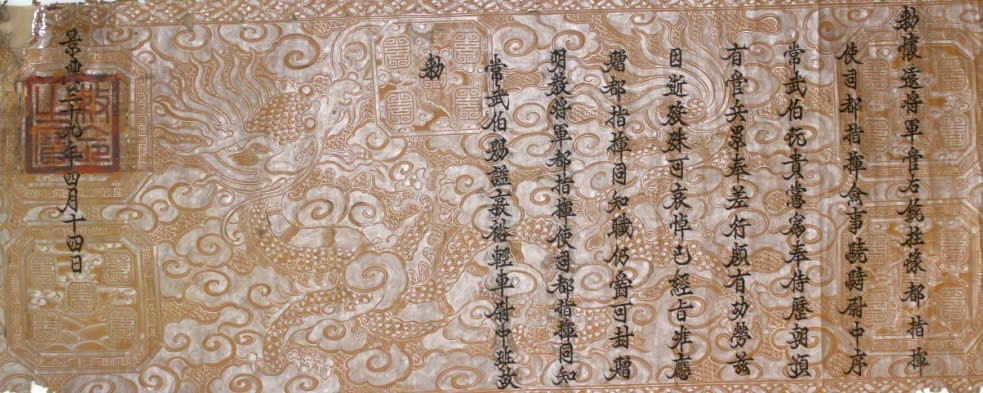 勅懷遠將軍管右銳挂𢴇都指揮
使司都指揮僉事驍騎尉中序
常武伯阮貴憲爲奉侍歷朝預
有管兵累奉差行頗有功勞茲
因逝歿殊可哀悼已經旨准應
贈都指揮同知職仍爵可封贈
明義將軍都指揮使司都指揮同知
常武伯賜謚 裕輕車尉中班故
勅
景興二十九年四月十四日